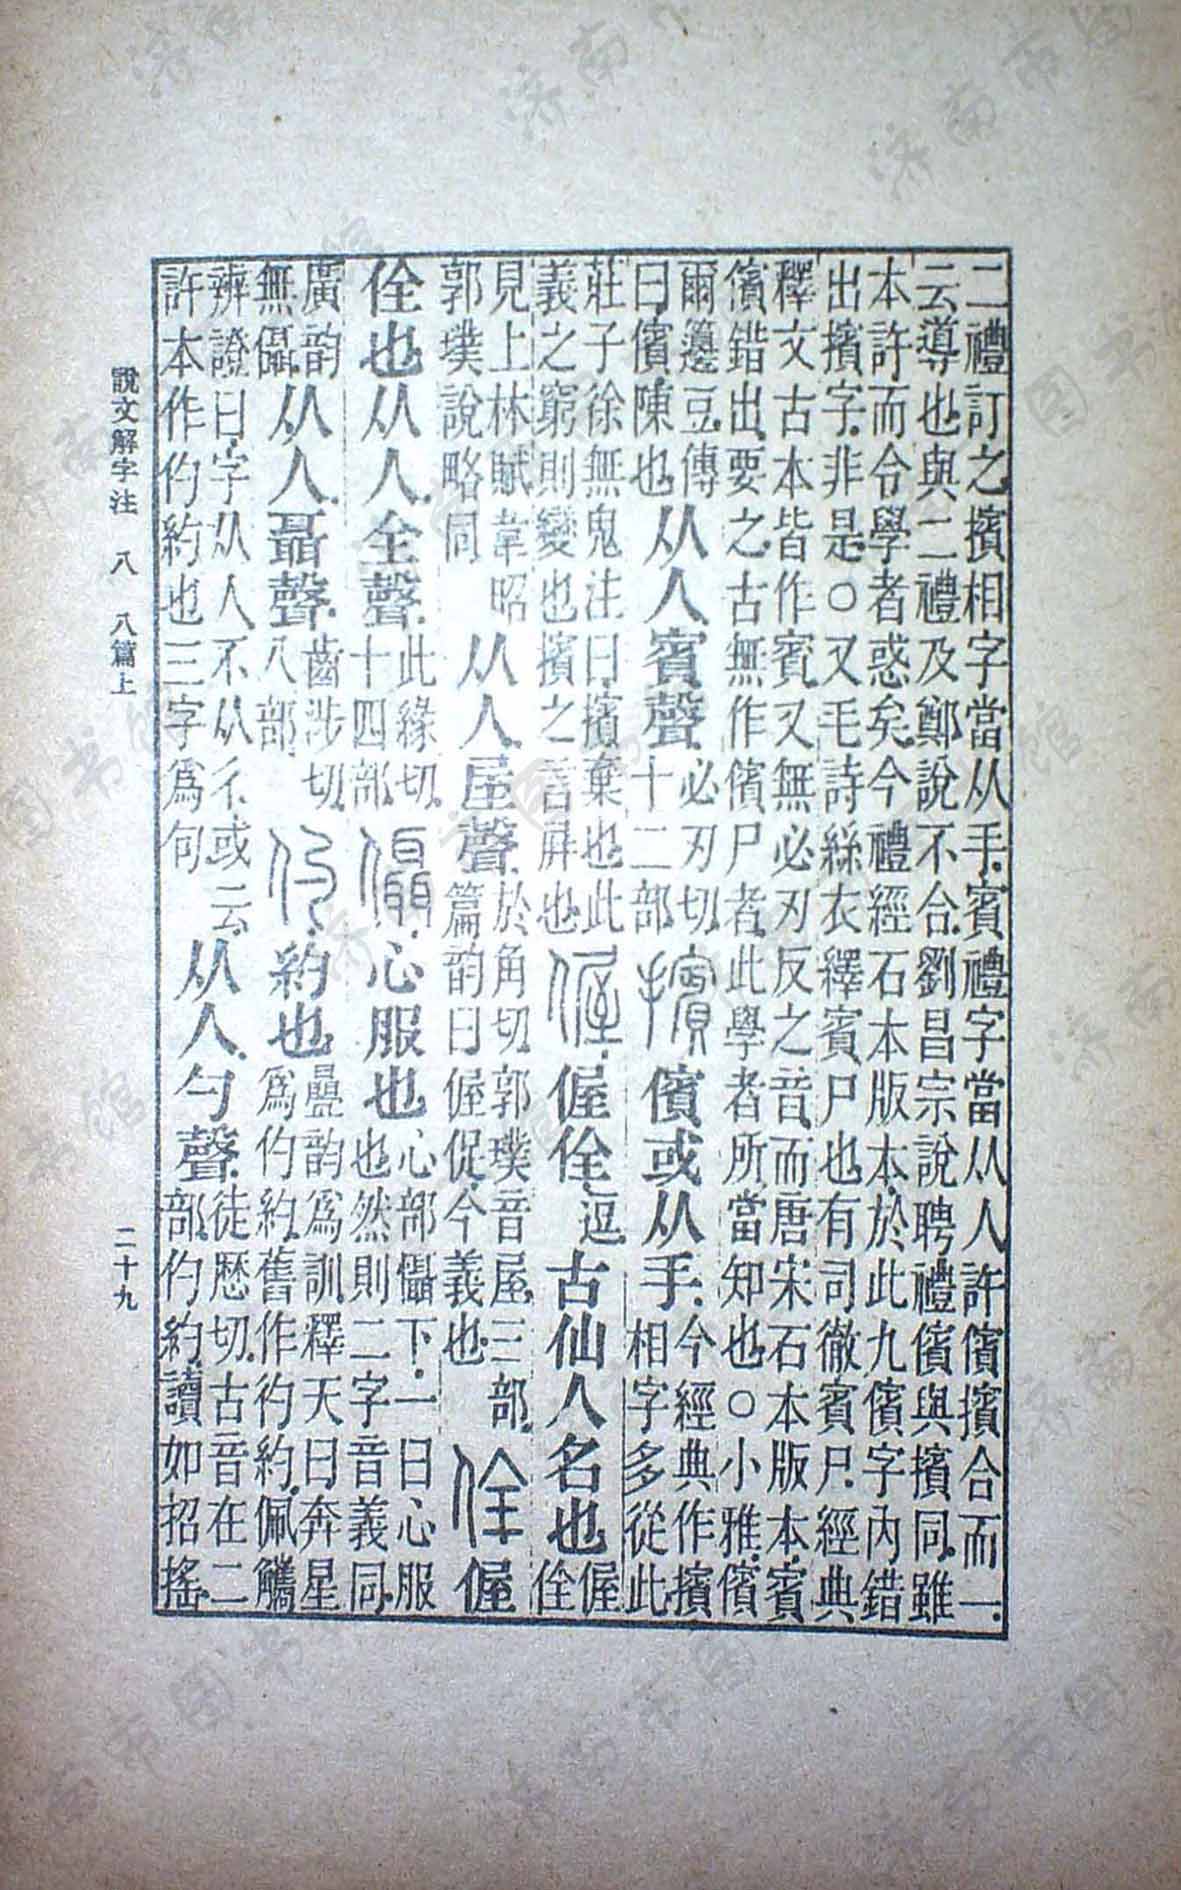 二禮訂之擯相字當从手賓禮字當从人許儐擯合而一
云導也與二禮及鄭說不合劉昌宗說聘禮儐與擯同雖
本許而令學者惑矣今禮經石本版本於此九儐字內錯
出擯字非是○又毛詩絲衣繹賓尸也有司徹賓尸經典
釋文古本皆作賓又無必刃反之音而唐宋石本版本賓
儐錯出要之古無作儐尸者此學者所當知也○小雅儐
爾籩豆傳曰儐陳也从人賓聲必刃切十二部擯儐或从手今經典作擯相字多從此
莊子徐無鬼注曰擯棄也此義之窮則變也擯之言屏也偓偓佺逗古仙人名也偓佺
見上林賦韋昭郭璞說略同从人屋聲於角切郭璞音屋三部篇韵曰偓促今義也佺偓
佺也从人全聲此緣切十四部㒤心服也心部懾下一曰心服也然則二字音義同
廣韵無㒤从人聶聲齒涉切八部仢約也疊韵爲訓釋天曰奔星爲仢約舊作彴約佩觿
辨證曰字从人不从彳或云許本作仢約也三字爲句从人勺聲徒歷切古音在二部仢約讀如招搖
說文解字注 八 八篇上 二十九
济南市图书馆